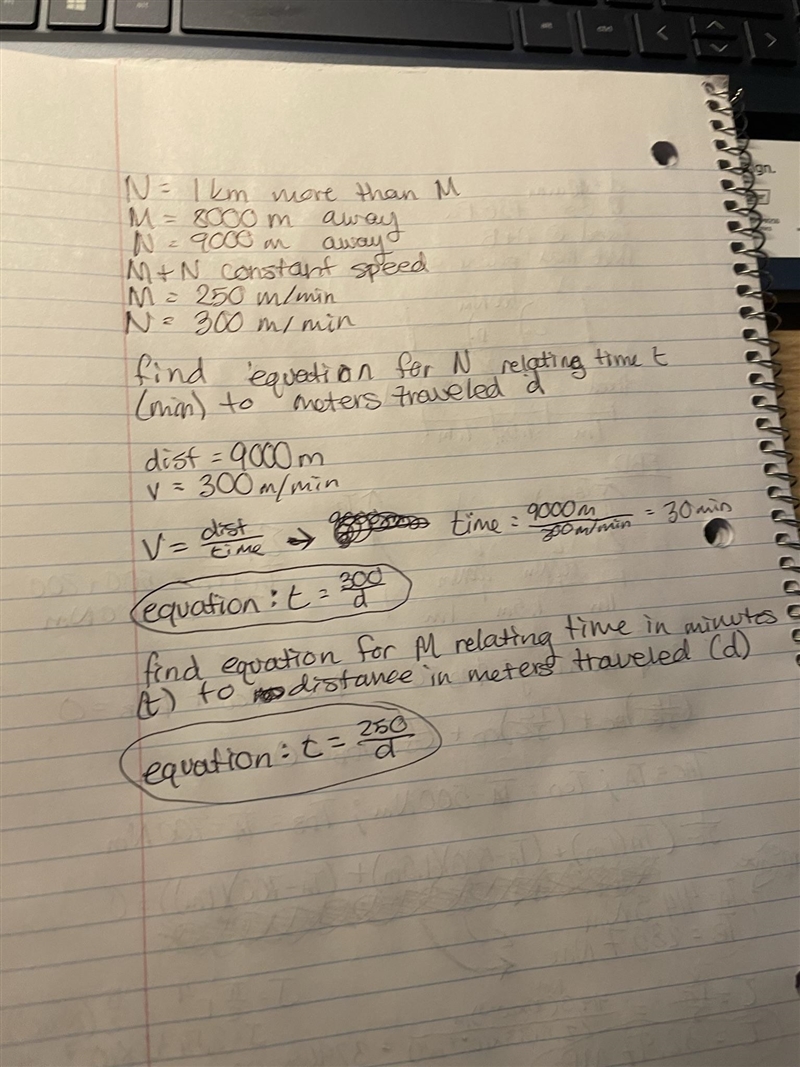 N = 1km more than M
M = 8000 m away
N = 9000 m away
M + N constant speed
M = 250 m/min
N = 300 m/min
find equation for N relating time t
(min) to meters traveled d
dist = 9000 m
v = 300 m/min
V = dist/time → time = 9000m/300m/min = 30 min
equation: t = 300/d
find equation for M relating time in minutes
(t) to distance in meters traveled (d)
equation: t = 250/d